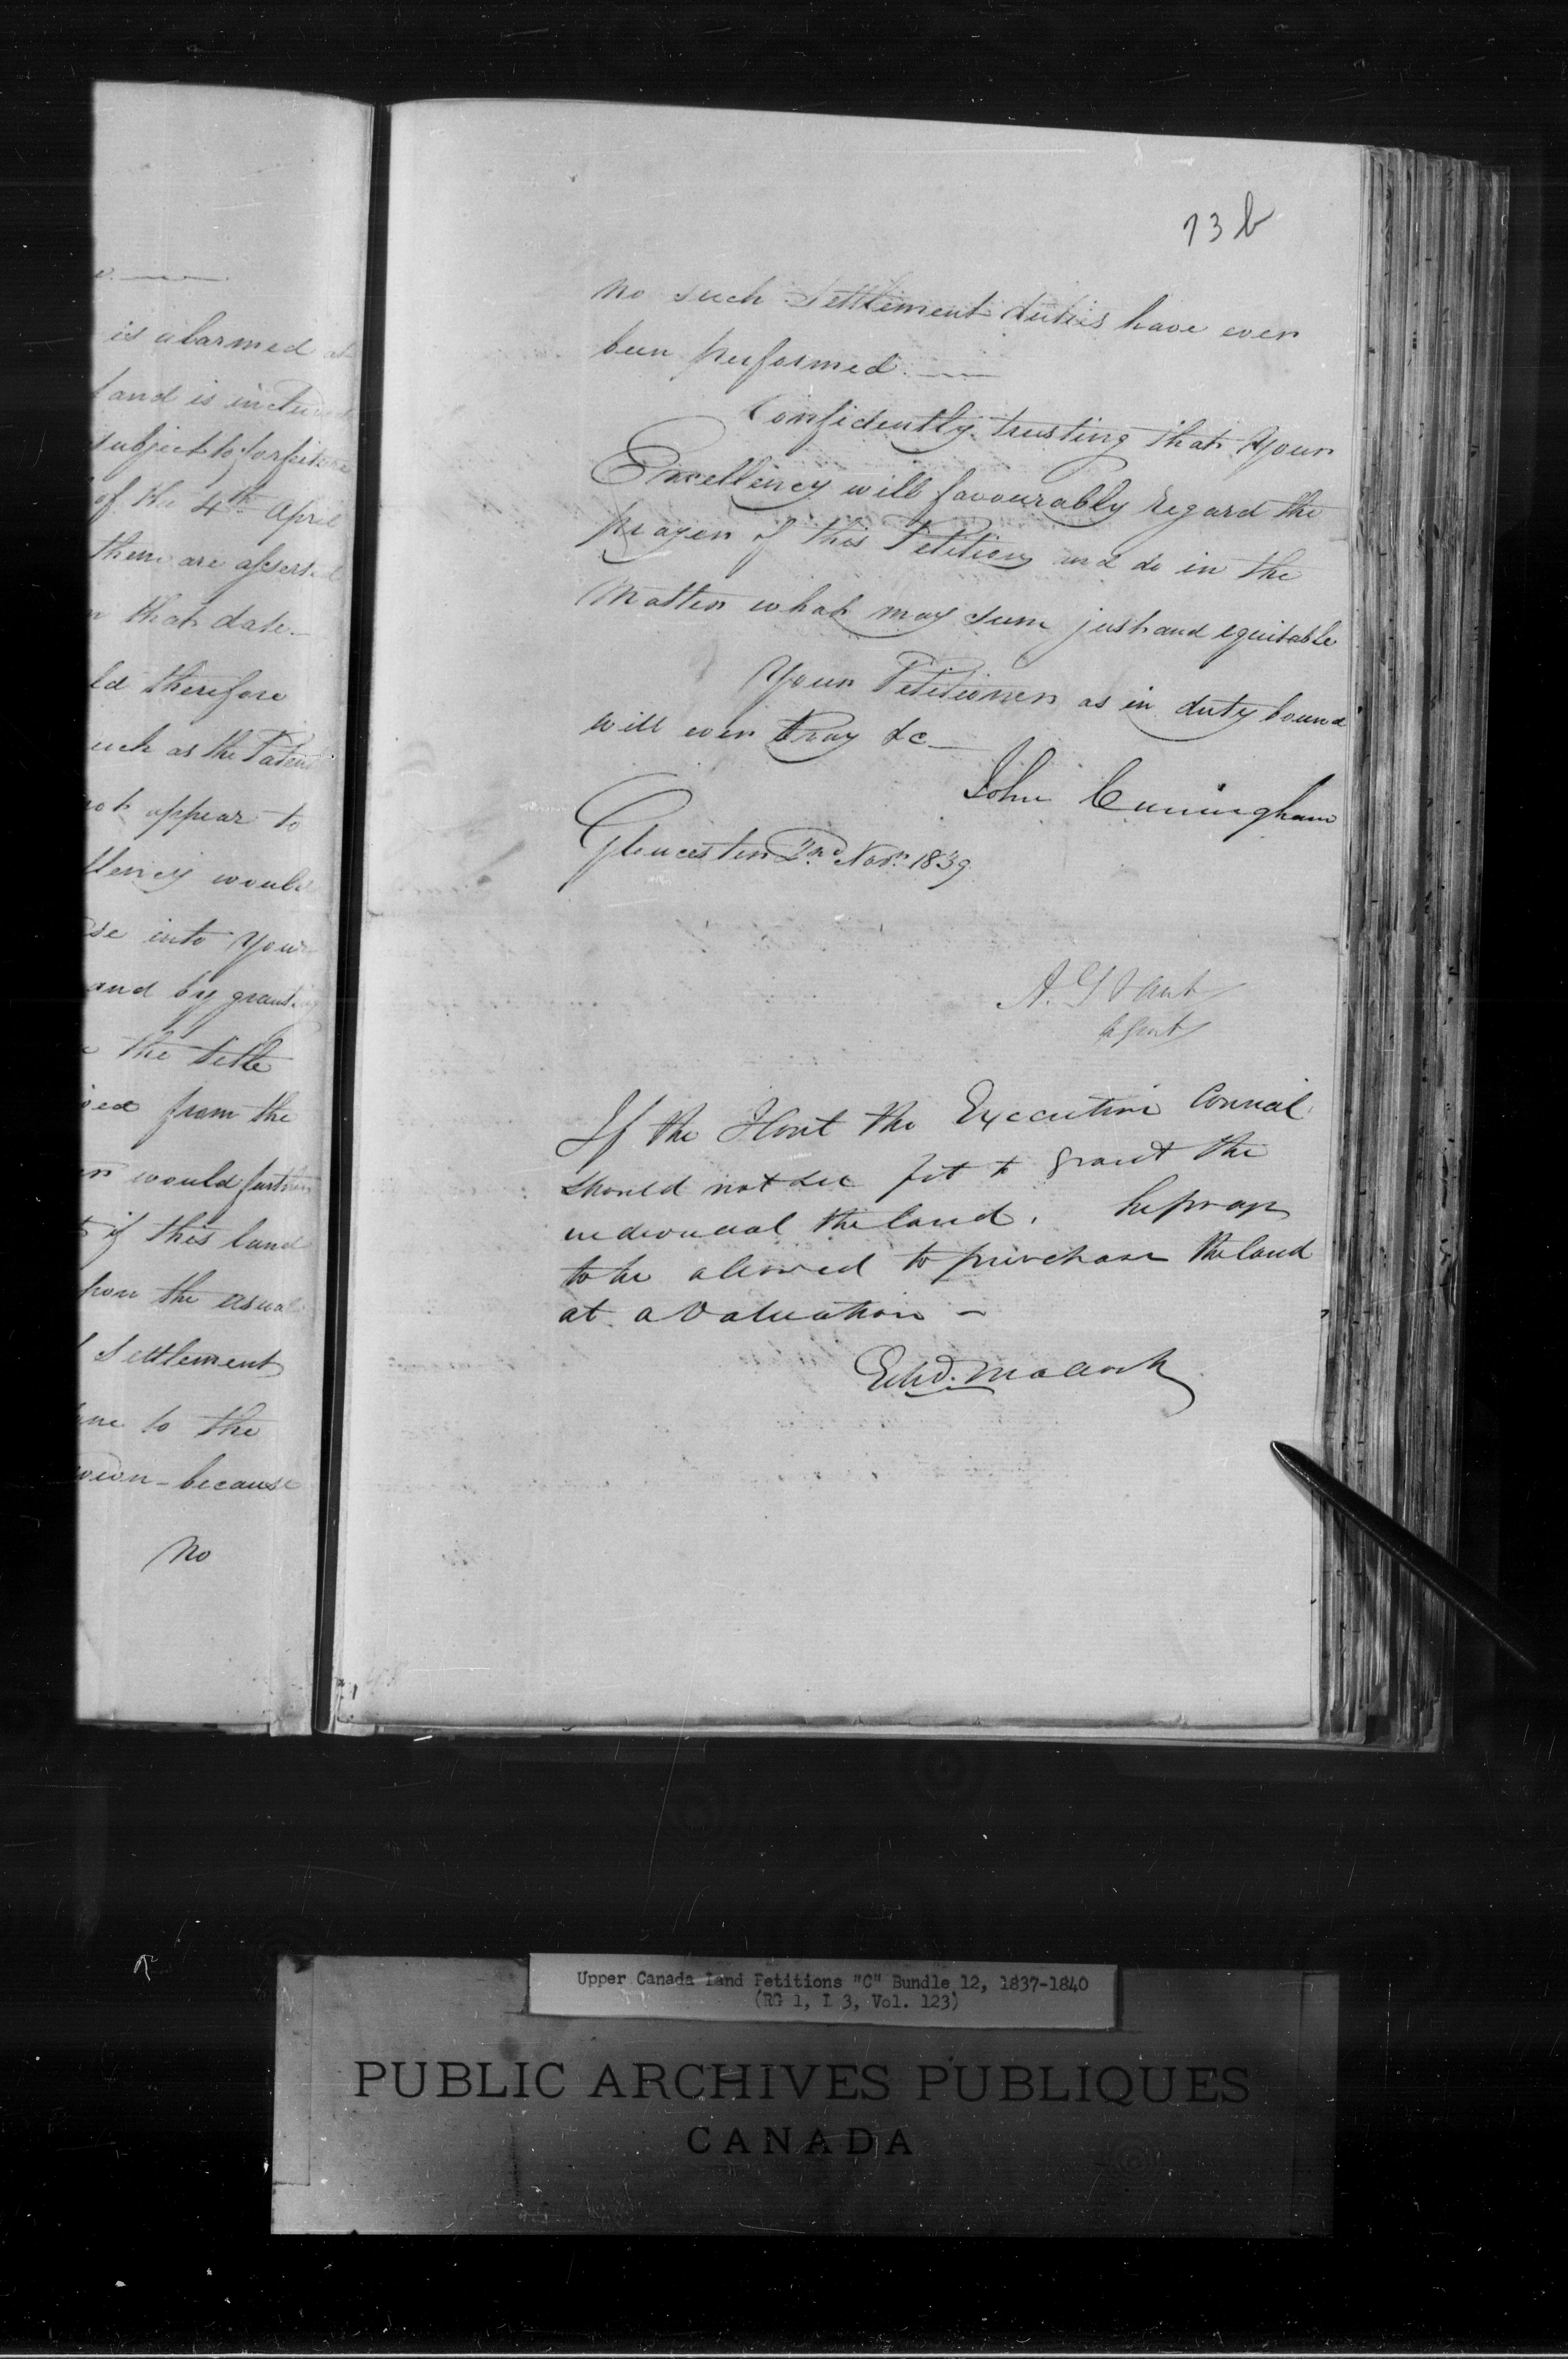 is alarmed at
land is in
subject to forfeiture
of the 4th April
them are assert
that date
ld therefore
uch as the Patent
not appear to
llency would
se into Your
and by granting
the title
ved from the
would further
if this land
pon the usual
Settlement
ne to the
because
No
73 b
no such Settlement duties have ever
been performed.
Confidently trusting that Your
Excellency will favourably regard the
prayer of this Petition and do in the
Matter what may seem just and equitable
Your Petitioner as in duty bound
will ever Pray &c
John Cuningham
Gloucester 2nd Novr. 1839
A. G
If the Honl the Executive Council
should not see fit to grant the
individual the land. he prays
to be allowed to purchase the land
at a valuation -
Edwd. Malloch
Upper Canada Land Petitions "C" Bundle 12, 1837-1840
(RG 1, L 3, Vol. 123)
PUBLIC ARCHIVES PUBLIQUES
CANADA